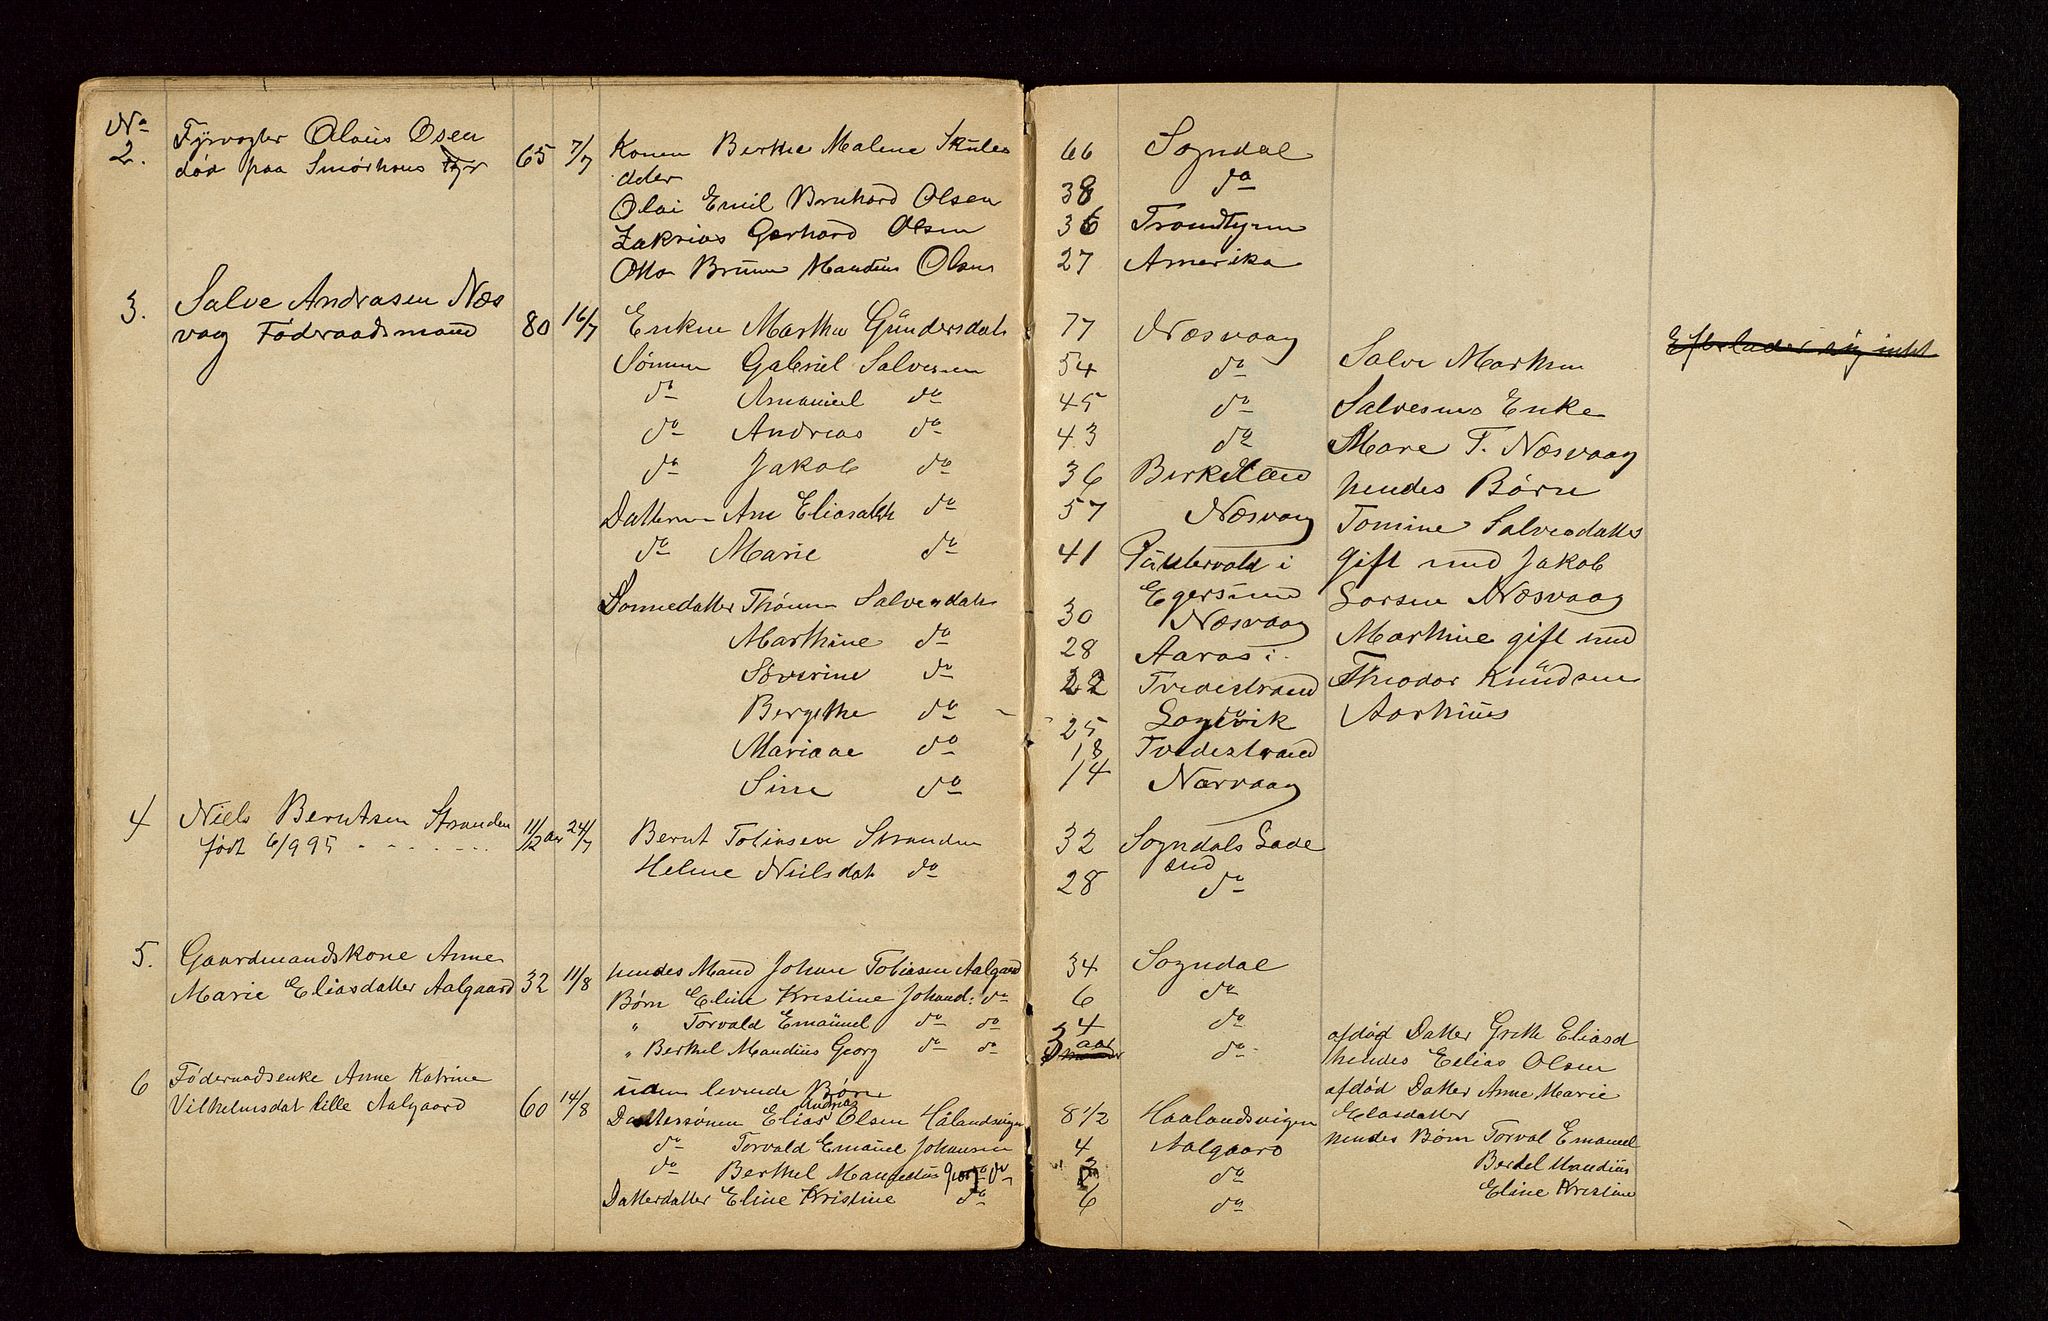 No
2. Fyrvogter Olaus Osen
død paa Smørhavs Fyr 65 7/7
Konen Berthe Malene Skules
dder 66 Sogndal
Olai Emil Bernhard Olsen 38 do
Zakrias Gerhard Olsen 36 Trondhjem
Otto Bruun Mandius Olsen 27 Amerika
3. Salve Andrasen Næs
vog Føderaadsmand 80 16/7
Enken Marthe Gundersdatr 77 Næsvaag
Efterlader sig intet
Sønnen Gabriel Salvesen 54 do Salve Marthin
do Amaniel do 45 do Salvesens Enke
do Andreas do 43 do Mare T. Næsvaag
do Jakob do 36 Birkeland hendes Børn
Datteren Ane Eliasabeth do 57 Næsvaag Tomine Salvesdatter
do Marie do 41 i gift med Jakob
Egersund Larsen Næsvaag
Sønnedatter Thomine Salvesdatr 30 Næsvaag
Marthine do 28 Aaros i Marthine gift med
Severine do 22 Tvedestrand Theodor Knudsen
Bergithe do 25 Songevik Aarhuus
Mariane do 18 Tvedestrand
Sine do 14 Næsvaag
4 Niels Berntsen Stranden 11/12 aar 24/7
født 6/9 95
Bernt Tobiasen Stranden 32 Sogndals Lade
sted
Helene Nielsdatr do 28 do
5. Gaardmandskone Anne
Marie Eliasdatter Aalgaard 32 11/8
hendes Mand Johan Tobiasen Aalgaard 34 Sogndal
Børn Eline Kristine Johand: do 6 do
" Torvald Emanuel do do 4 do
" Berthel Mandius Georg do do 3 aar do
6 Føderaadsenke Anne Katrine
Vilhelmsdat lille Aalgaard 60 14/8
uden levende Børn
Dattersønnen Elias Andreas Olsen Hålandsvigen 8 1/2 Haalandsvigen
do Torvald Emanuel Johansen 4 Aalgaard
do Berthel Mandius Georg do 3 do
Datterdatter Eline Kristine do 6 do
afdød Datter Greth Eliasd
hendes Elias Olsen
afdød Datter Anne Marie
Eliasdatter
hendes Børn Torval Emanuel
Bertel Mandius
Eline Kristine